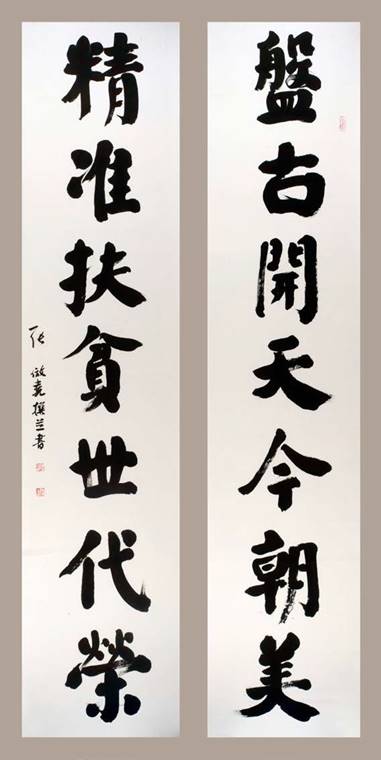 盤古開天今朝美
精准扶貧世代榮
張 堯撰并書